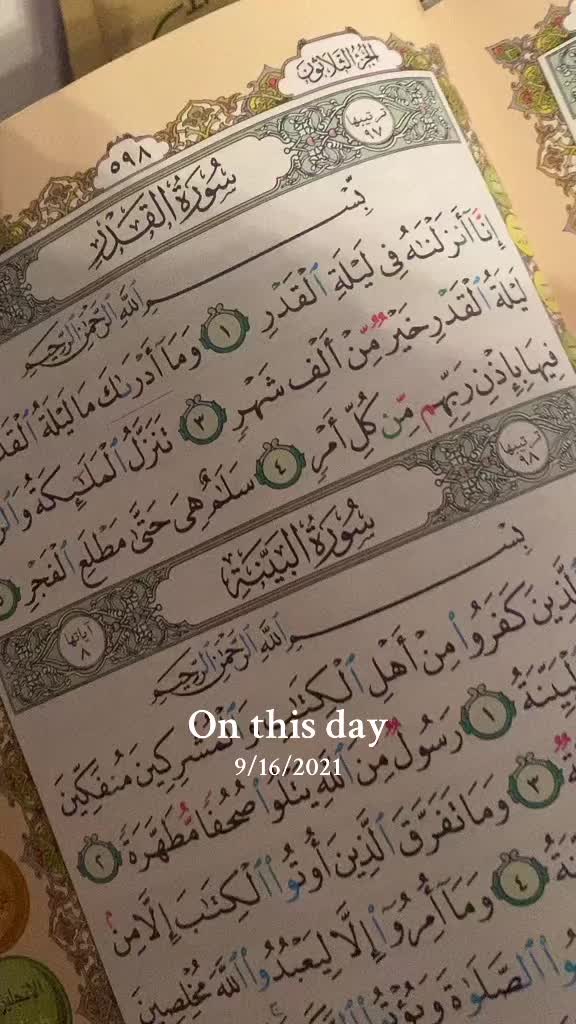 الجزء الثلاثون
٥٩٨
سُورَةُ القَدْرِ
ترتيبها
٩٧
بِسْمِ اللَّهِ الرَّحْمَٰنِ الرَّحِيمِ
إِنَّآ أَنزَلْنَٰهُ فِى لَيْلَةِ ٱلْقَدْرِ ١ وَمَآ أَدْرَىٰكَ مَا لَيْلَةُ
لَيْلَةُ ٱلْقَدْرِ خَيْرٌ مِّنْ أَلْفِ شَهْرٍ ٣ تَنَزَّلُ ٱلْمَلَٰٓئِكَةُ
فِيهَا بِإِذْنِ رَبِّهِم مِّن كُلِّ أَمْرٍ ٤ سَلَٰمٌ هِىَ حَتَّىٰ مَطْلَعِ ٱلْفَجْرِ
سُورَةُ البَيِّنَةِ
ترتيبها
٩٨
آياتها
٨
بِسْمِ اللَّهِ الرَّحْمَٰنِ الرَّحِيمِ
ٱلَّذِينَ كَفَرُوا۟ مِنْ أَهْلِ ٱلْكِتَٰبِ وَٱلْمُشْرِكِينَ مُنفَكِّينَ
ٱلْبَيِّنَةُ ١ رَسُولٌ مِّنَ ٱللَّهِ يَتْلُوا۟ صُحُفًا مُّطَهَّرَةً ٢
٣ وَمَا تَفَرَّقَ ٱلَّذِينَ أُوتُوا۟ ٱلْكِتَٰبَ إِلَّا مِنۢ
٤ وَمَآ أُمِرُوٓا۟ إِلَّا لِيَعْبُدُوا۟ ٱللَّهَ مُخْلِصِينَ
ٱلصَّلَوٰةَ وَيُؤْتُوا۟
On this day
9/16/2021